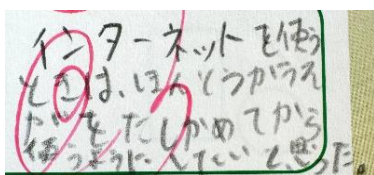 インターネットを使う
ときは、ほんとうかうそ
かをたしかめてから
使うようにしたいと思った。